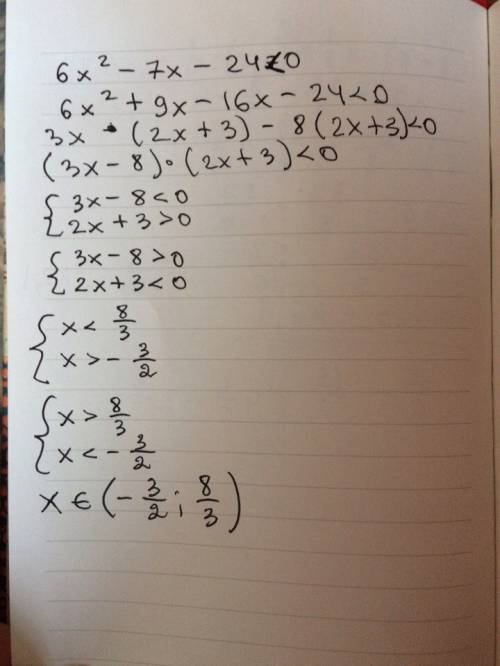 6x² - 7x - 24<0
6x² + 9x - 16x - 24<0
3x · (2x + 3) - 8(2x+3)<0
(3x - 8)·(2x+3)<0
{ 3x - 8<0
2x + 3>0
{ 3x - 8>0
2x+3<0
{ x < 8/3
x > - 3/2
{ x > 8/3
x < - 3/2
x ∈ (- 3/2 ; 8/3)